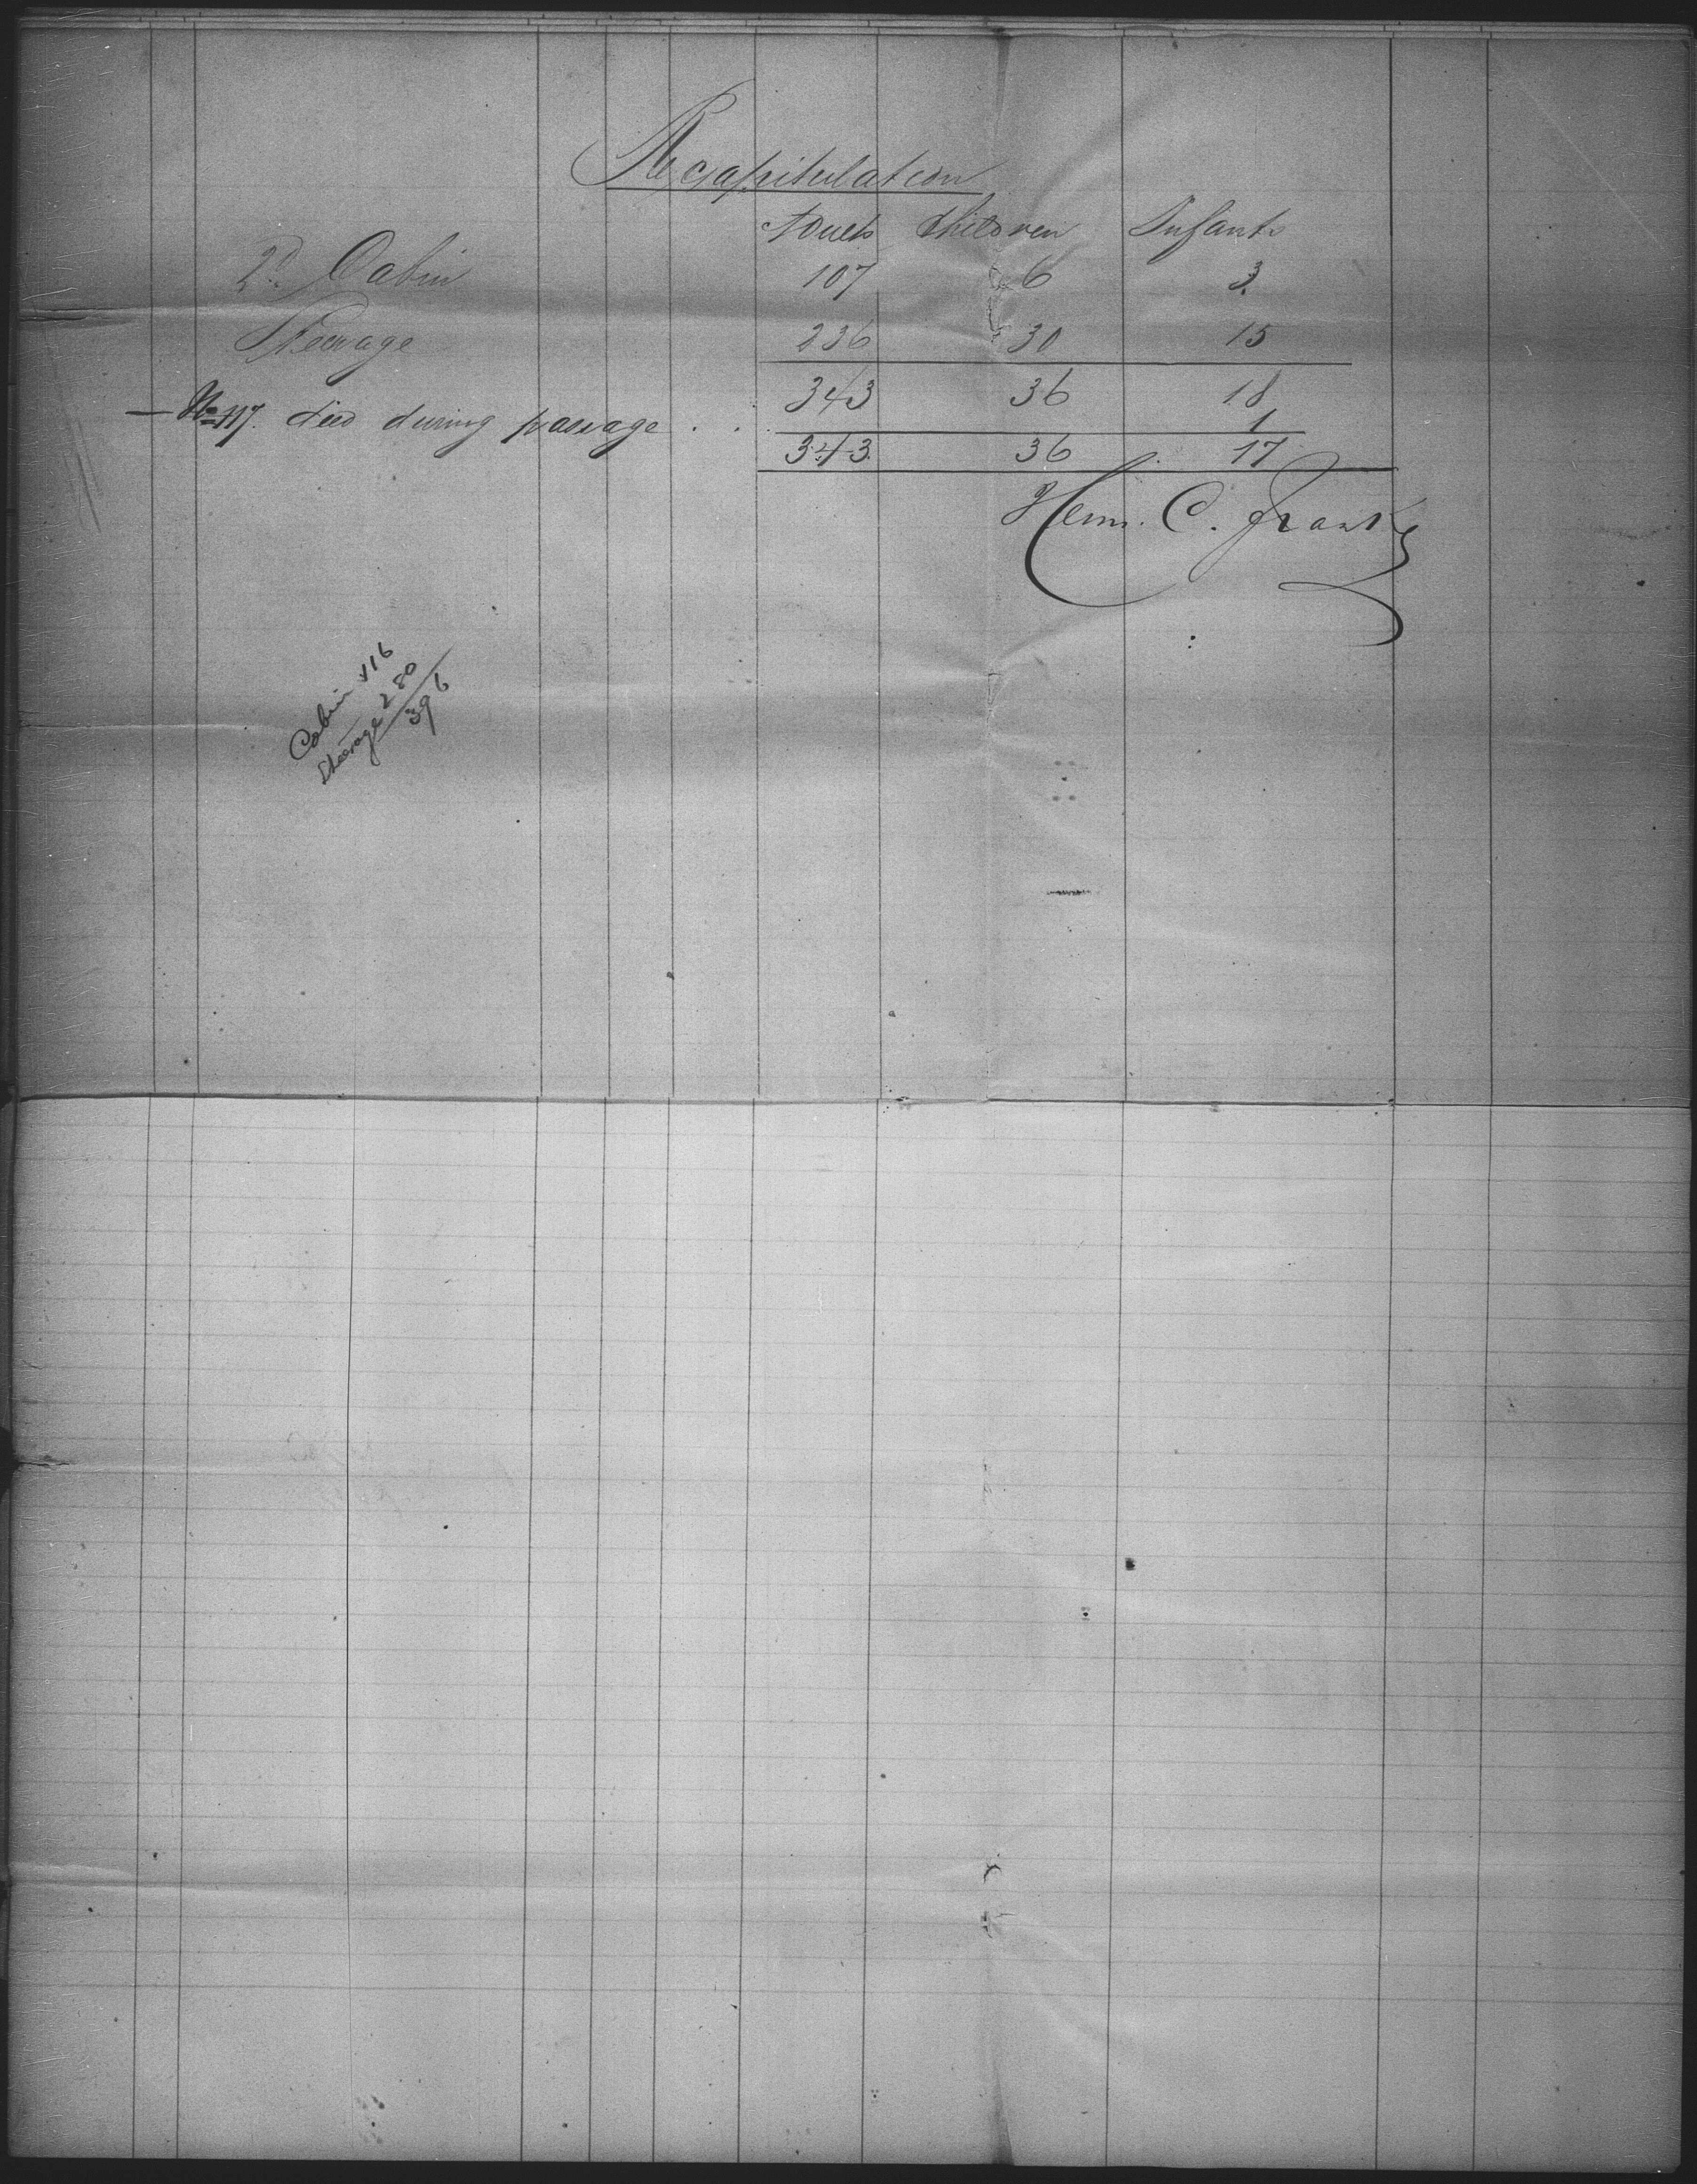 Recapitulation
Adults Children Infants
2d. Cabin 107 6 3
Steerage 236 30 15
343 36 18
— No 117. died during passage . . 1
343 36 17
Herm. C. Franke
Cabin 116
Steerage 280
396